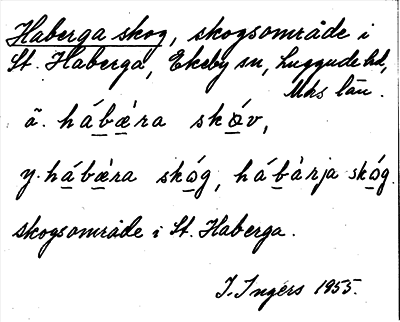 Haberga skog, skogsområde i
St. Haberga, Ekeby sn, Luggude hd,
Mhs län.
ä. hábǽra skóv,
y. hábǽra skóg, hábàrja skóg.
skogsområde i St. Haberga.
I. Ingers 1955.